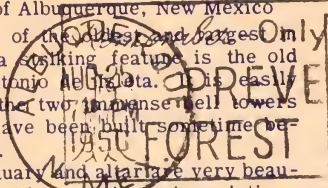 of Albuquerque, New Mexico
of the oldest and largest in
a striking feature is the old
tonio de Isleta. It is easily
the two immense bell towers
ave been built sometime be-
uary and altar are very beau-
Only
PREVE
FOREST
ALBUQUERQUE
N. M.